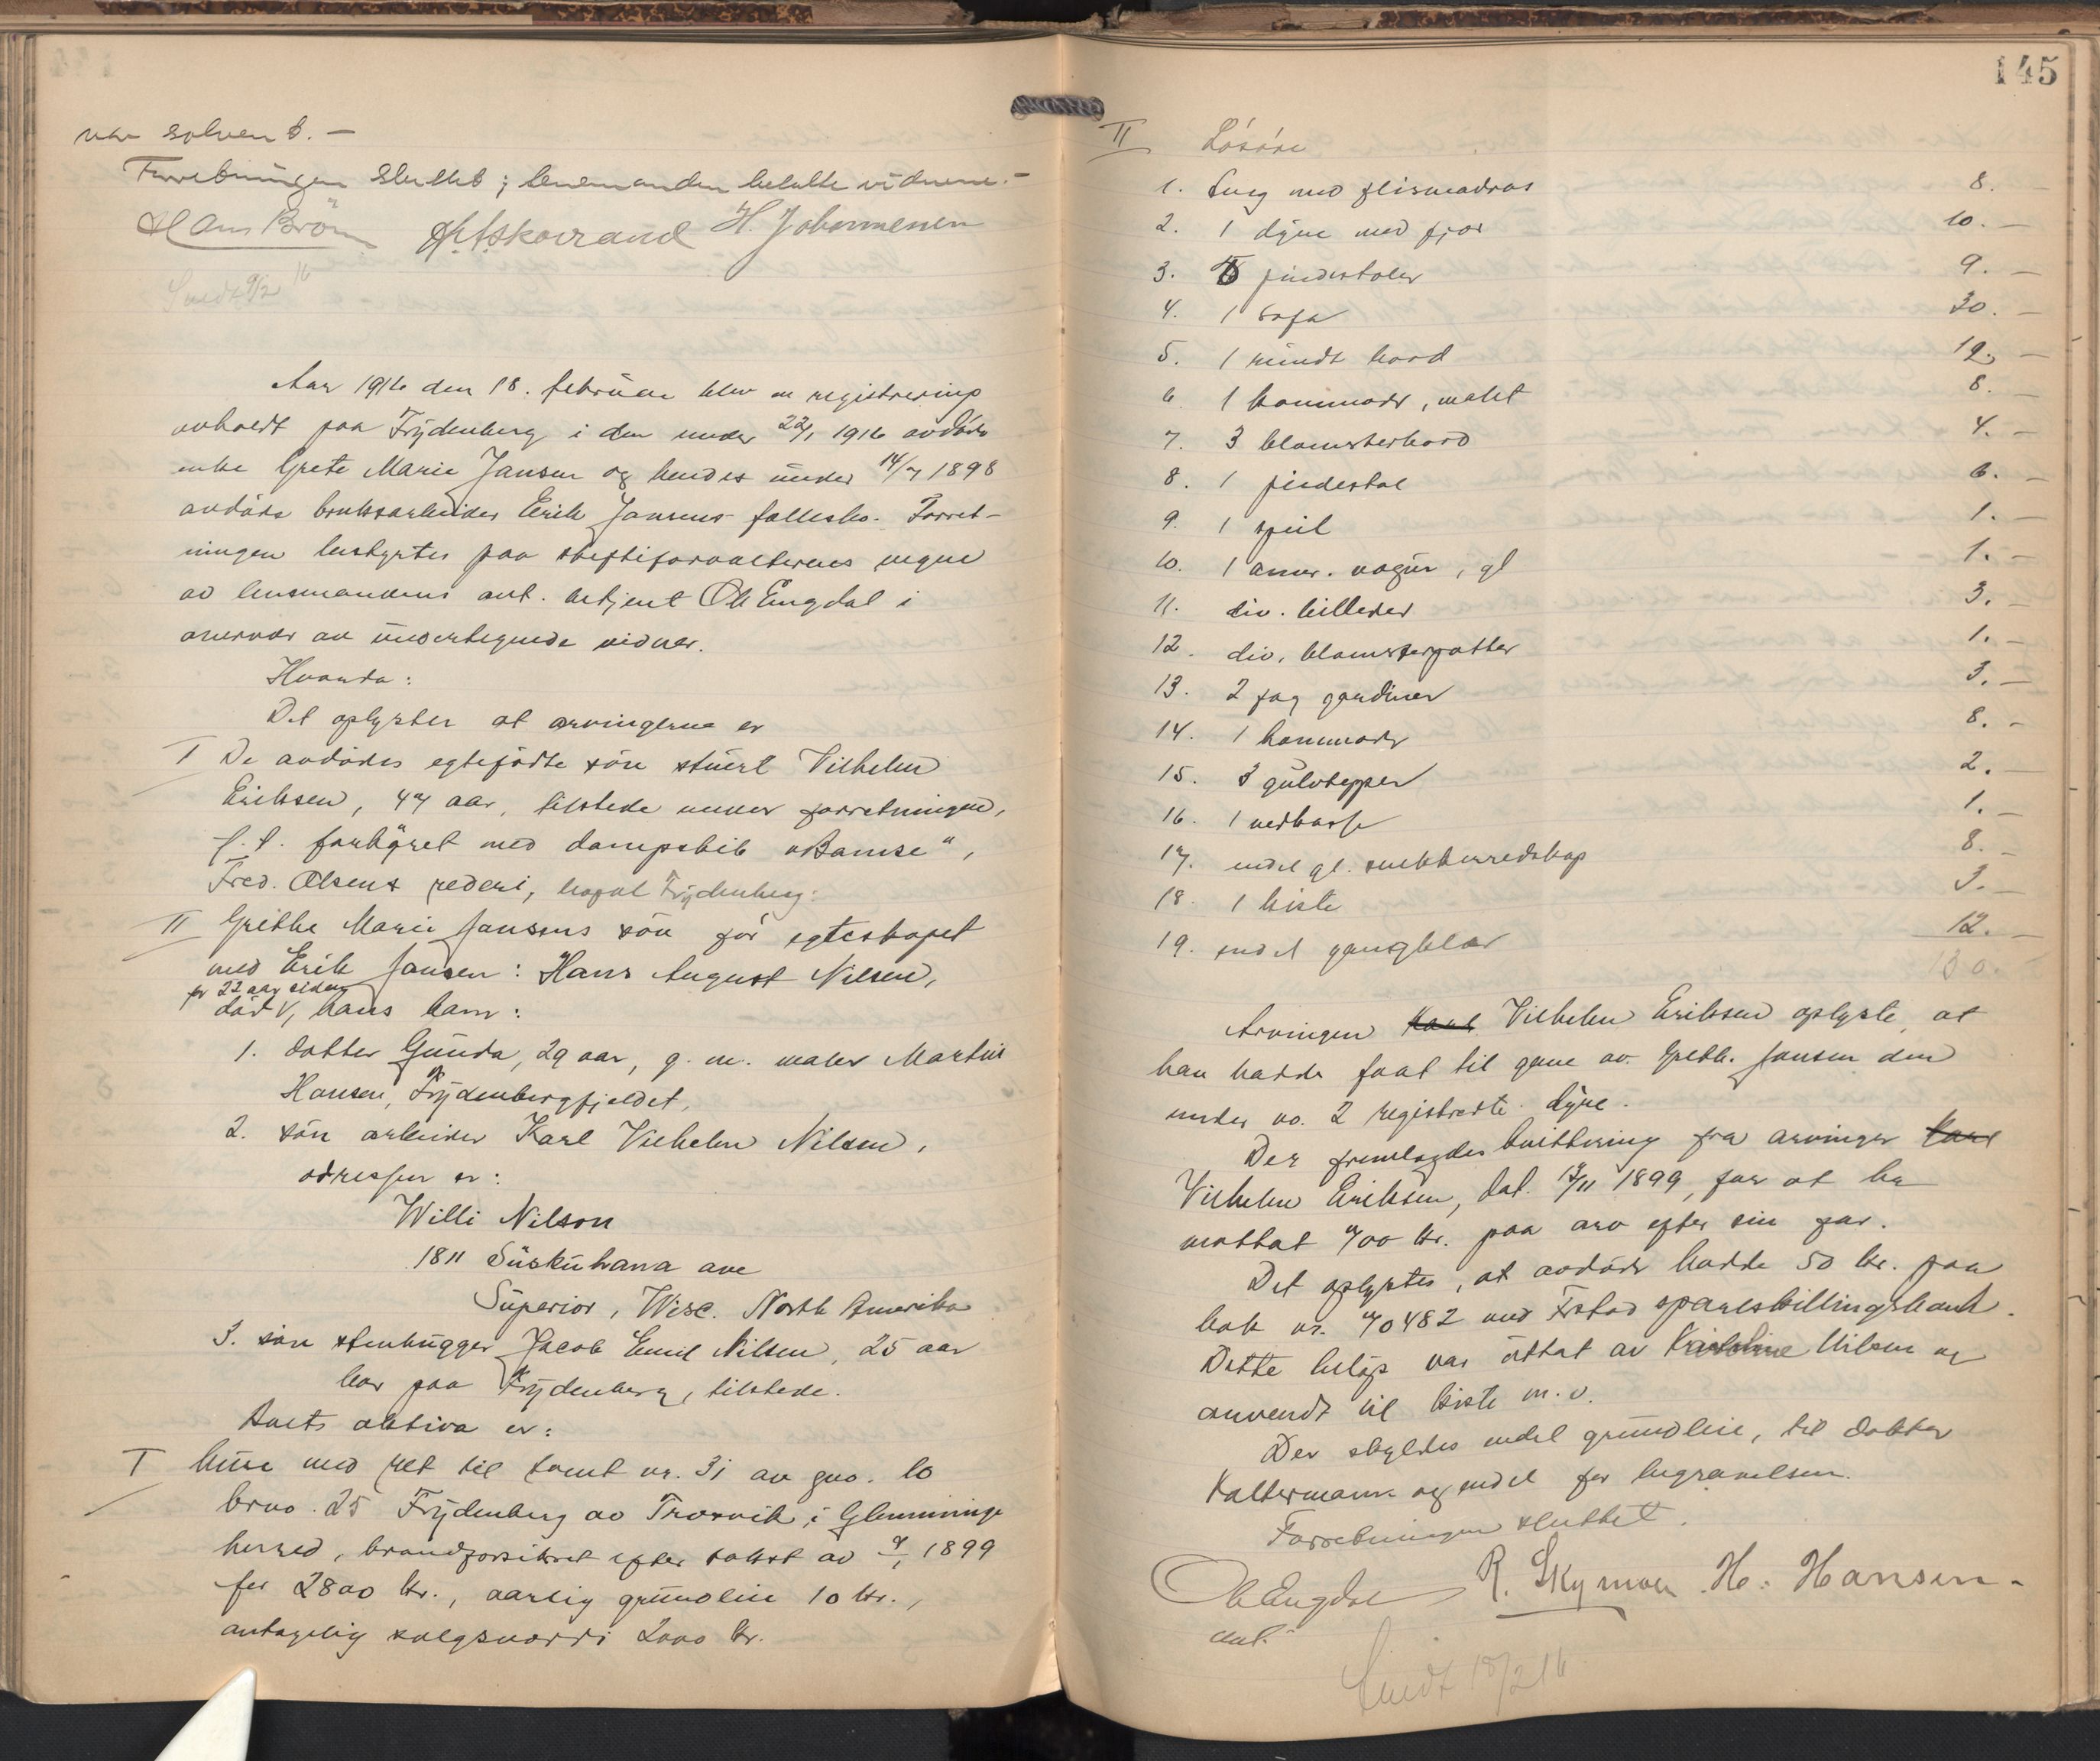 var solvent. —
Forretningen sluttet; lensmanden betalte vidnerne. —
Hans Bröm H. Johannesen
Sendt 9/2 16
Aar 1916 den 18. februar blev en registrering
avholdt paa Frydenberg i den under 22/1 1916 avdöde
enke Grete Marie Jansen og hendes under 14/7 1898
avdöde bruksarbeider Erik Jansens fællesbo. Forret-
ningen bestyrtes paa skifteforvalterens vegne
av lensmandens aut. betjent Ole Engdal i
overvær av undertegnede vidner.
Hvorda:
Det oplystes at arvingerne er
I De avdödes egtefödte sön stuert Vilhelm
Eriksen, 47 aar, tilstede under forretningen,
f. t. forhyret med dampskib "Bamse",
Fred. Olsens rederi, bopæl Frydenberg.
II Grethe Marie Jansens sön för egteskapet
med Erik Jansen: Hans August Nilsen,
for 22 aar siden
död V, hans barn:
1. datter Gunda, 29 aar, g. m. maler Martin
Hansen, Frydenbergfjeldet,
2. sön arbeider Karl Vilhelm Nilsen,
adressen er:
Willi Nilson
1811 Süskühana ave
Superior, Wisc. North Amerika
3. sön stenhugger Jacob Emil Nilsen, 25 aar
bor paa Frydenberg, tilstede.
Boets aktiva er:
I huse med ret til tomt nr. 31 av gno. 10
brno. 25 Frydenberg av Trosvik i Glemminge
herred, brandforsikret efter takst av 9/1 1899
for 2800 kr., aarlig grundleie 10 kr.,
antagelig salgsværdi 2000 kr.
145
II Lösöre
1. Seng med flismadras 8. —
2. 1 dyne med fjær 10. —
3. 6 pindestoler 9. —
4. 1 sofa 30. —
5. 1 rundt bord 12. —
6. 1 kommode, malet 8. —
7. 3 blomsterbord 4. —
8. 1 pindestol 6. —
9. 1 speil 1. —
10. 1 amer. vogur, gl 1. —
11. div. billeder 3. —
12. div. blomsterpotter 1. —
13. 2 fag gardiner 3. —
14. 1 kommode 8. —
15. 3 gulvtepper 2.
16. 1 vedkasse 1. —
17. endel gl. snekkerredskap 8. —
18. 1 kiste 3. —
19. endel gangklær 12. —
130.
Arvingen Karl Vilhelm Eriksen oplyste, at
han hadde faat til gave av Greth. Jansen den
under no. 2 registrerte dyne.
Der fremlagdes kvittering fra arvinger Karl
Vilhelm Eriksen, dat. 17/11 1899, for at ha
mottat 700 kr. paa arv efter sin far.
Det oplystes, at avdöde hadde 50 kr. paa
bok nr. 70482 ved Fr.stad spareskillingsbank.
Dette belöp var uttat av Kristine Nilsen og
anvendt til kiste m. v.
Der skyldes endel grundleie, til doktor
Kaltermann og endel for begravelsen.
Forretningen sluttet.
Ole Engdal R. Skyman H. Hansen.
aut.
Sendt 18/2 16